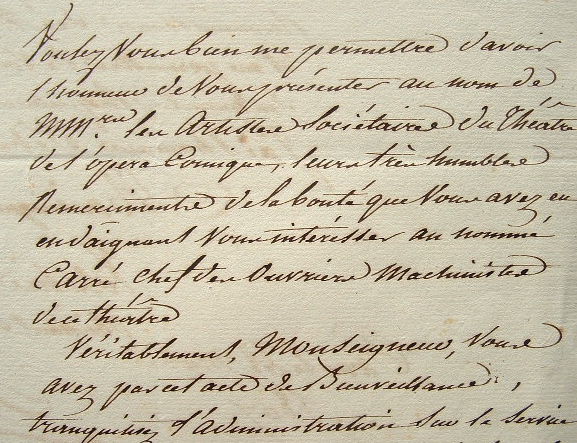 Voulez Vous bien me permettre d'avoir
l'honneur de Vous présenter au nom de
MM.rs les Artistes Sociétaires du Théâtre
de l'opera Comique, leurs très humbles
Remerciments de la bonté que Vous avez eu
en daignant Vous intérésser au nommé
Carré chef des Ouvriers Machinistes
de ce théâtre
Véritablement, Monseigneur, Vous
avez par cet acte de Bienveillance,
tranquilisé l'Administration Sur le Service